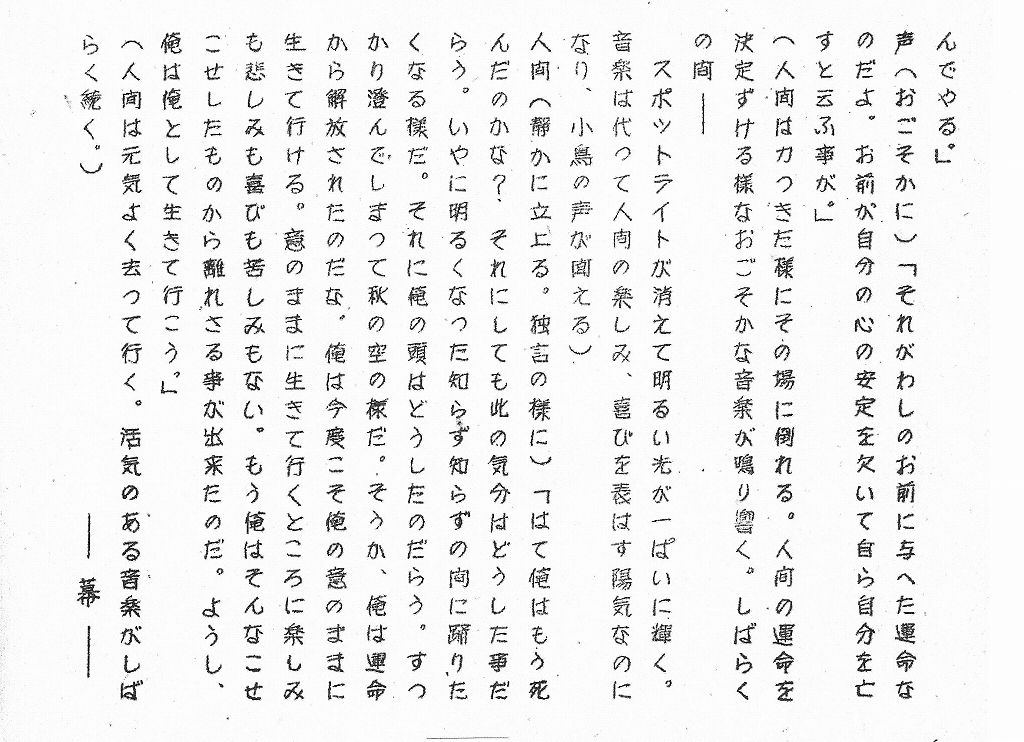 んでやる。」
声(おごそかに)「それがわしのお前に与へた運命な
のだよ。お前が自分の心の安定を欠いて自ら自分を亡
すと云ふ事が。」
(人間は力つきた様にその場に倒れる。人間の運命を
決定ずける様なおごそかな音楽が鳴り響く。しばらく
の間――
スポットライトが消えて明るい光が一ぱいに輝く。
音楽は代って人間の楽しみ、喜びを表はす陽気なのに
なり、小鳥の声が聞える)
人間(静かに立上る。独言の様に)「はて俺はもう死
んだのかな?それにしても此の気分はどうした事だ
らう。いやに明るくなった知らず知らずの間に踊りた
くなる様だ。それに俺の頭はどうしたのだらう。すっ
かり澄んでしまって秋の空の様だ。そうか、俺は運命
から解放されたのだな。俺は今度こそ俺の意のままに
生きて行ける。意のままに生きて行くところに楽しみ
も悲しみも喜びも苦しみもない。もう俺はそんなこせ
こせしたものから離れさる事が出来たのだ。ようし、
俺は俺として生きて行こう。」
(人間は元気よく去って行く。活気のある音楽がしば
らく続く。)
――幕――